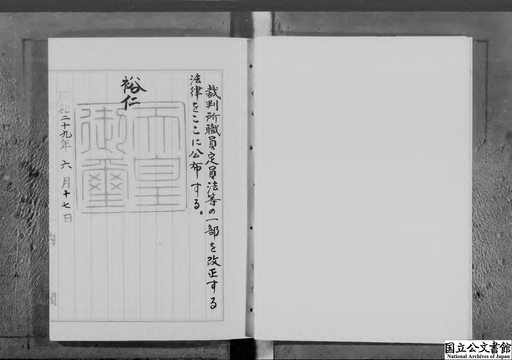 裁判所職員定員法等の一部を改正する
法律をここに公布する。
裕仁
天皇
御璽
昭和二十九年 六 月 十七 日
国立公文書館
National Archives of Japan